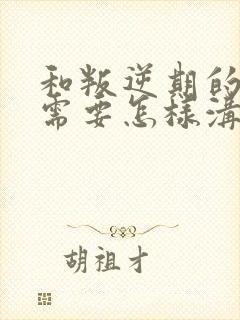 和叛逆期的
需要怎樣溝
胡祖才